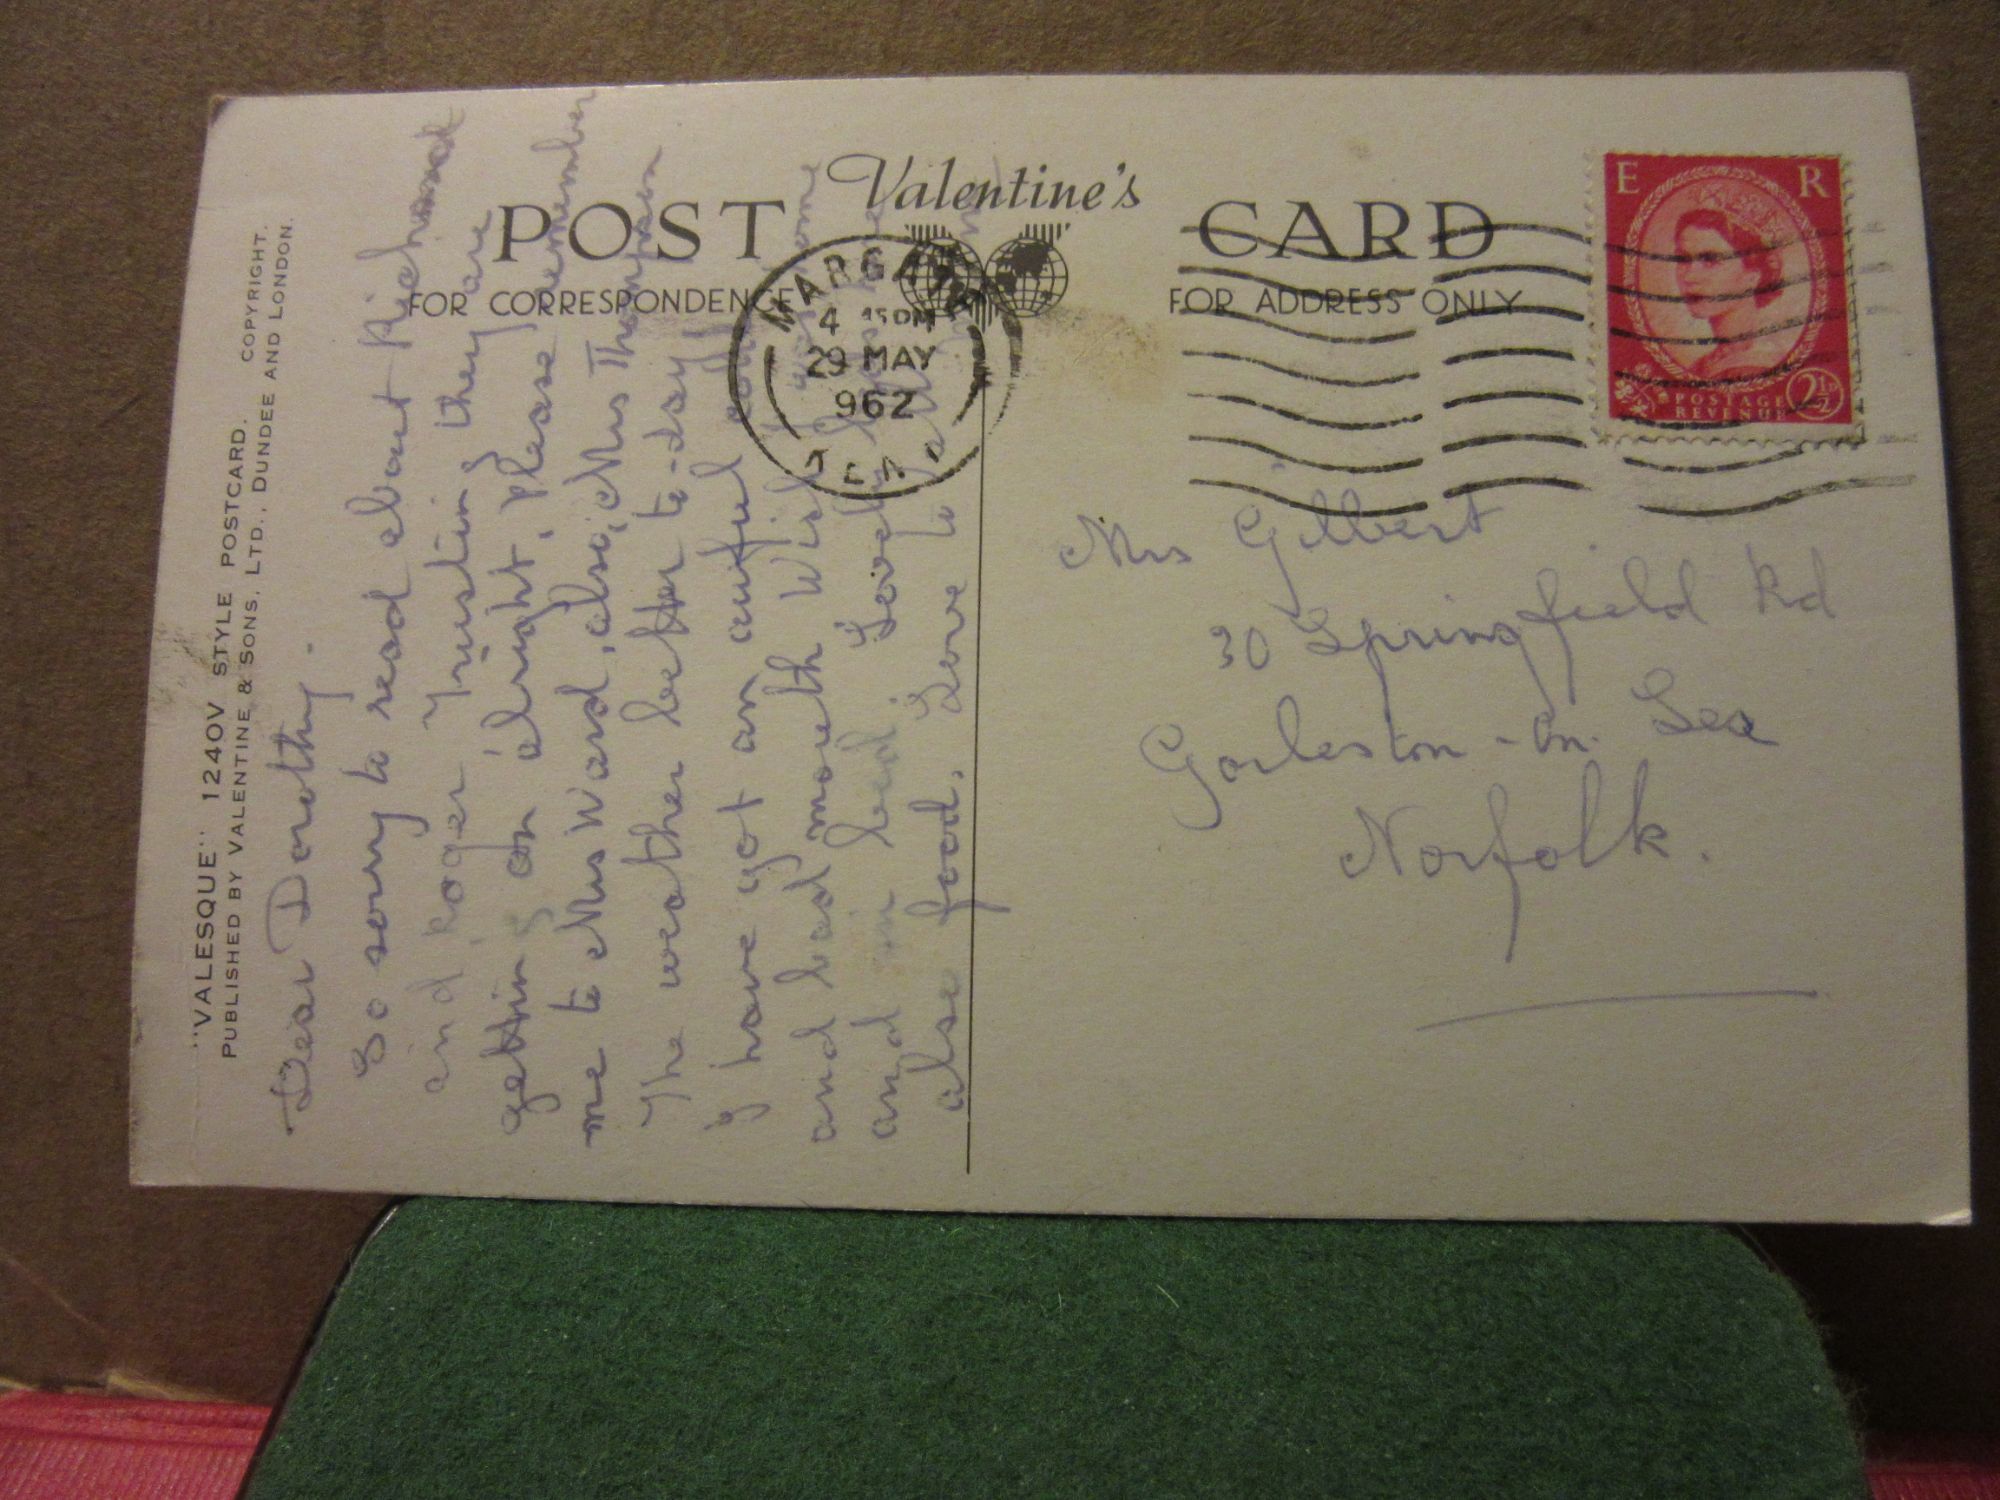 "VALESQUE" 1240V STYLE POSTCARD. COPYRIGHT.
PUBLISHED BY VALENTINE & SONS, LTD., DUNDEE AND LONDON.
POST Valentine's CARD
FOR CORRESPONDENCE FOR ADDRESS ONLY
MARGATE
4 15 PM
29 MAY
962
E R
POSTAGE
REVENUE
2½D
Dear Dorothy.
So sorry to read about Richard
and Roger Trusting they are
getting on alright, please remember
me to Mrs Ward, also, Mrs Thompson
The weather better to-day
I have got an awful cold
and bad mouth Wish I home
and in bed. Lovely
also food, Love to all
Mrs Gilbert
30 Springfield Rd
Gorleston-on. Sea
Norfolk.